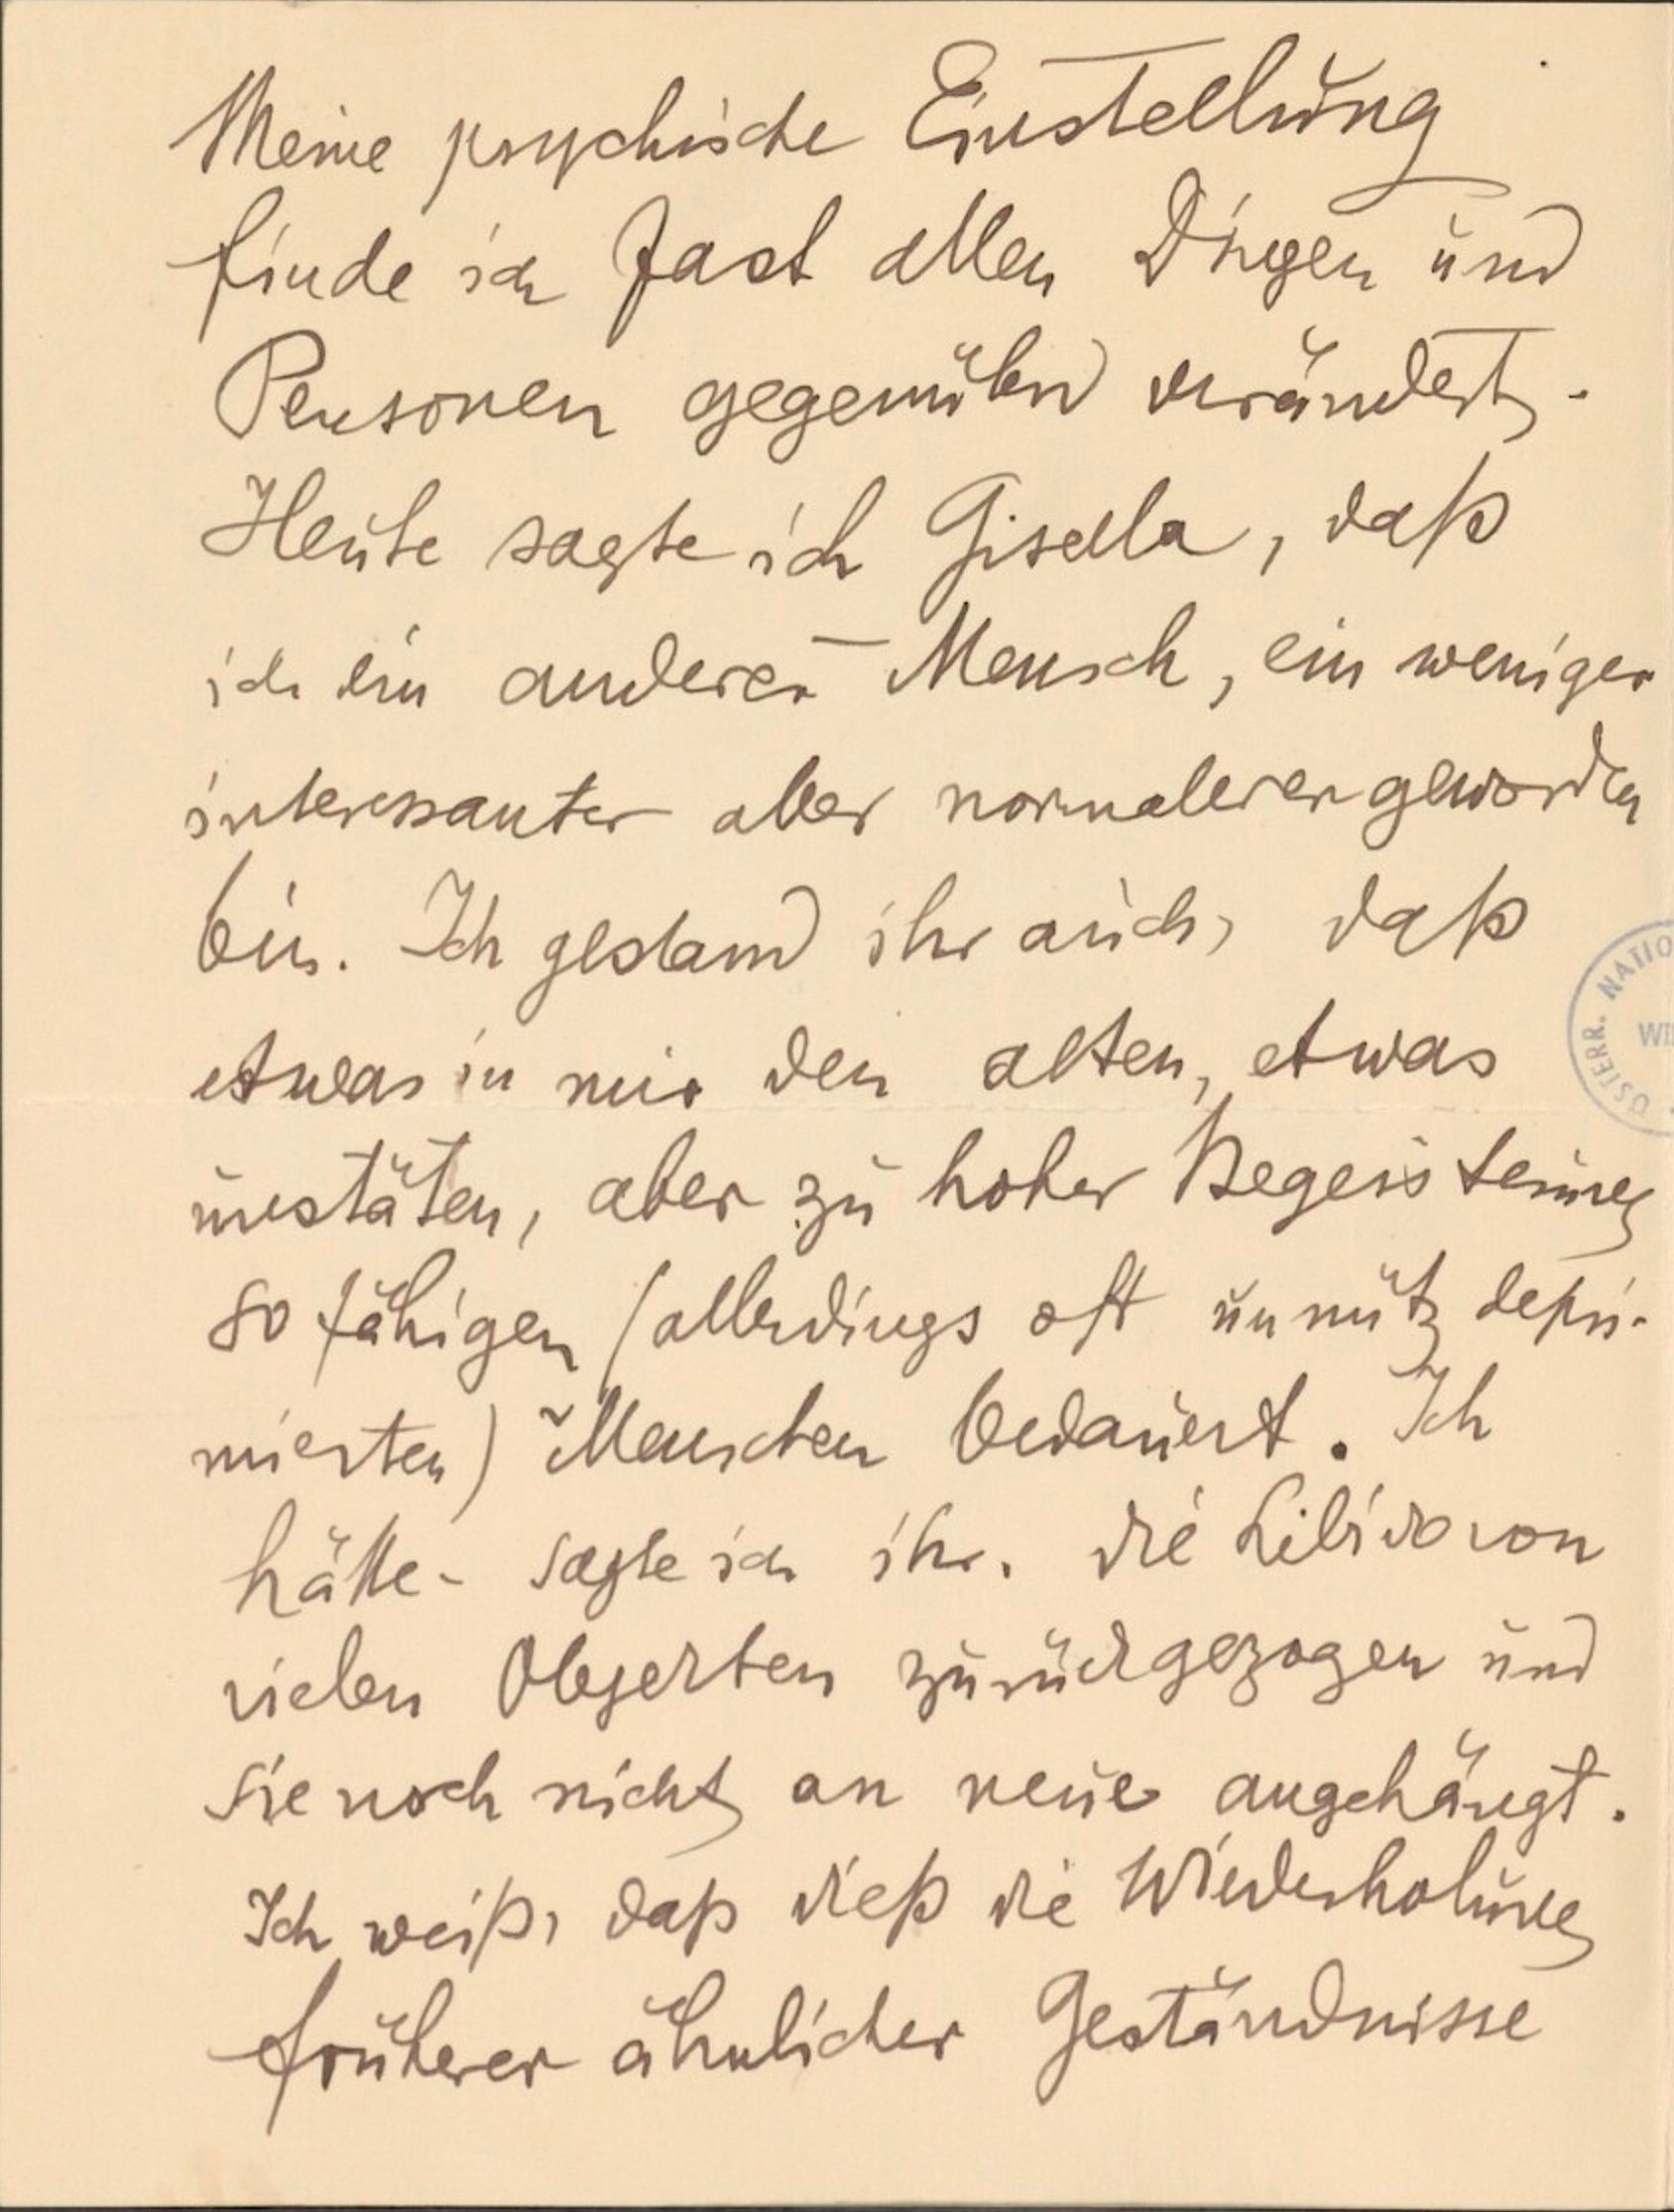 Meine psychische Einstellung
finde ich fast allen Dingen und
Personen gegenüber verändert.
Heute sagte ich Gisella, daß
ich ein anderer Mensch, ein weniger
interessanter aber normalerer geworden
bin. Ich gestand ihr auch, daß
etwas in mir den alten, etwas
unstäten, aber zu hoher Begeisterung
so fähigen (allerdings oft unnütz depri-
mierten) Menschen bedauert. Ich
hätte - sagte ich ihr. die Libido von
vielen Objekten zurückgezogen und
sie noch nicht an neue angehängt.
Ich weiß, daß dieß die Wiederholung
früherer ähnlicher Geständnisse
ÖSTERR. NATIO
WI